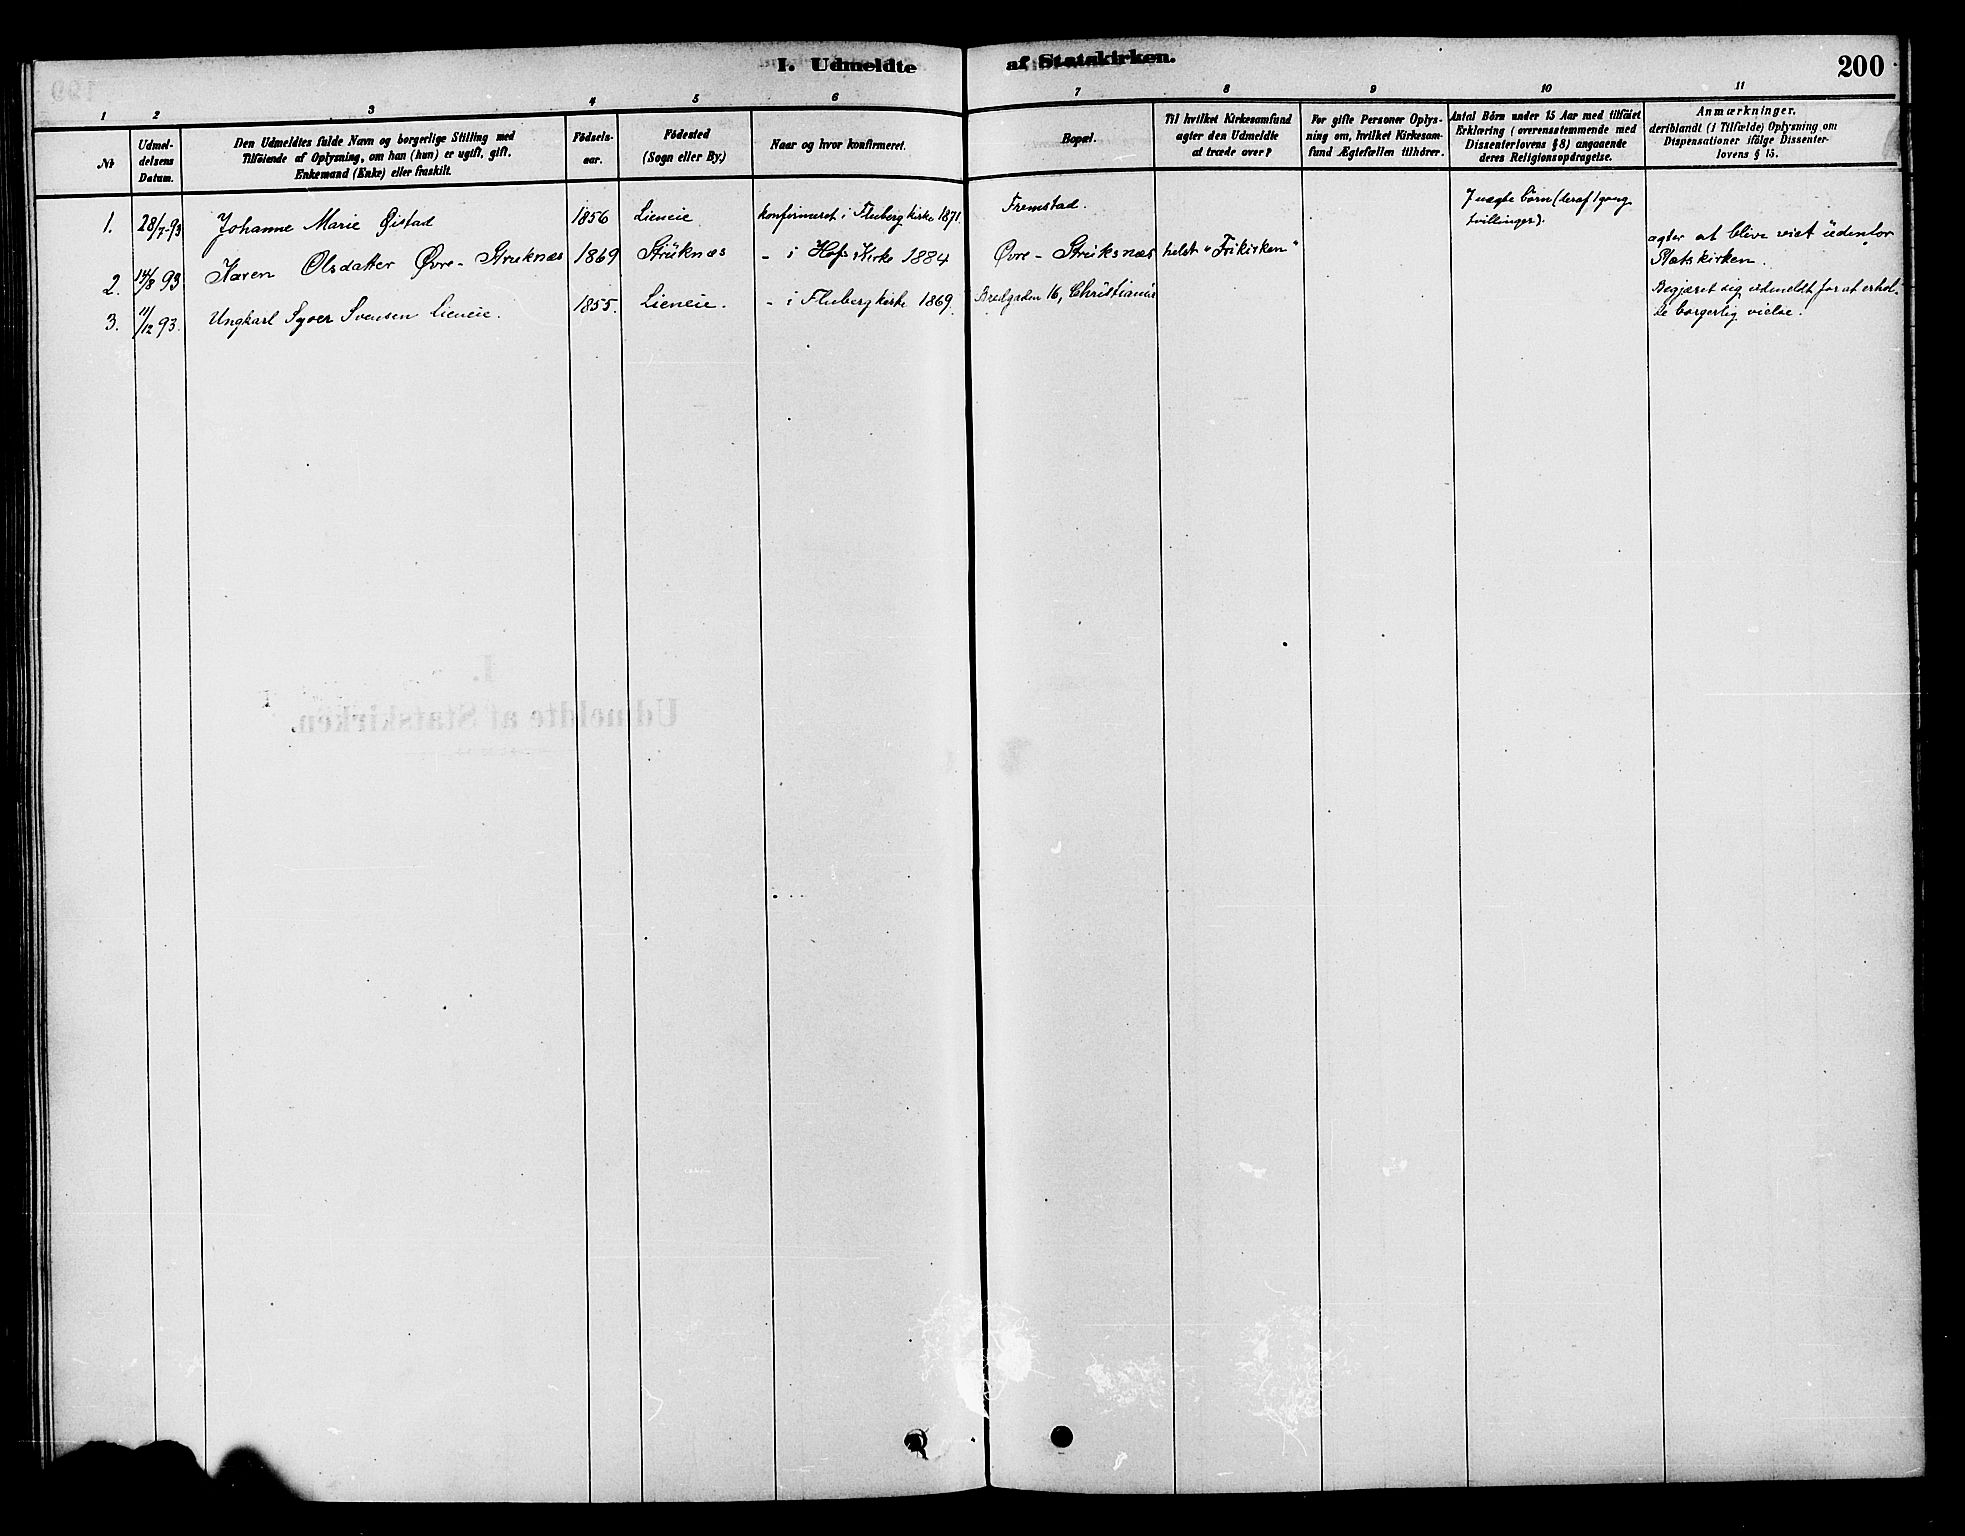 I. Udmeldte af Statskirken. 200
1 2 3 4 5 6 7 8 9 10 11
№ Udmel-delsens Datum. Den Udmeldtes fulde Navn og borgerlige Stilling med Tilföiende af Oplysning, om han (hun) er ugift, gift, Enkemand (Enke) eller fraskilt. Födsels-aar. Födested (Sogn eller By.) Naar og hvor konfirmeret. Bopæl. Til hvilket Kirkesamfund agter den Udmeldte at træde over? For gifte Personer Oplys-ning om, hvilket Kirkesam-fund Ægtefællen tilhörer. Antal Börn under 15 Aar med tilföiet Erklæring (overensstemmende med Dissenterlovens § 8) angaaende deres Religionsopdragelse. Anmærkninger, deriblandt (i Tilfælde) Oplysning om Dispensationer ifölge Dissenter-lovens § 15.
1. 28/7-93 Johanne Marie Øistad 1856 Lieneie konfirmeret i Fluberg kirke 1871. Fremstad. 7 uægte børn (deraf 1 gang
tvillinger).
2. 14/8 93 Karen Olsdatter Øvre-Struknæs 1869 Strüknæs - i Hofs Kirke 1884 Øvre-Strüksnæs helst "Frikirken" agter at blive viet üdenfor
Statskirken.
3. 11/12 93. Ungkarl Syver Svensen Lieneie. 1855. Lieneie. - i Fluberg kirke 1869. Bredgaden 16, Christiania Begjæret sig udmeldt for at erhol-
de borgerlig vielse.
I.
Udmeldte af Statskirken.
199